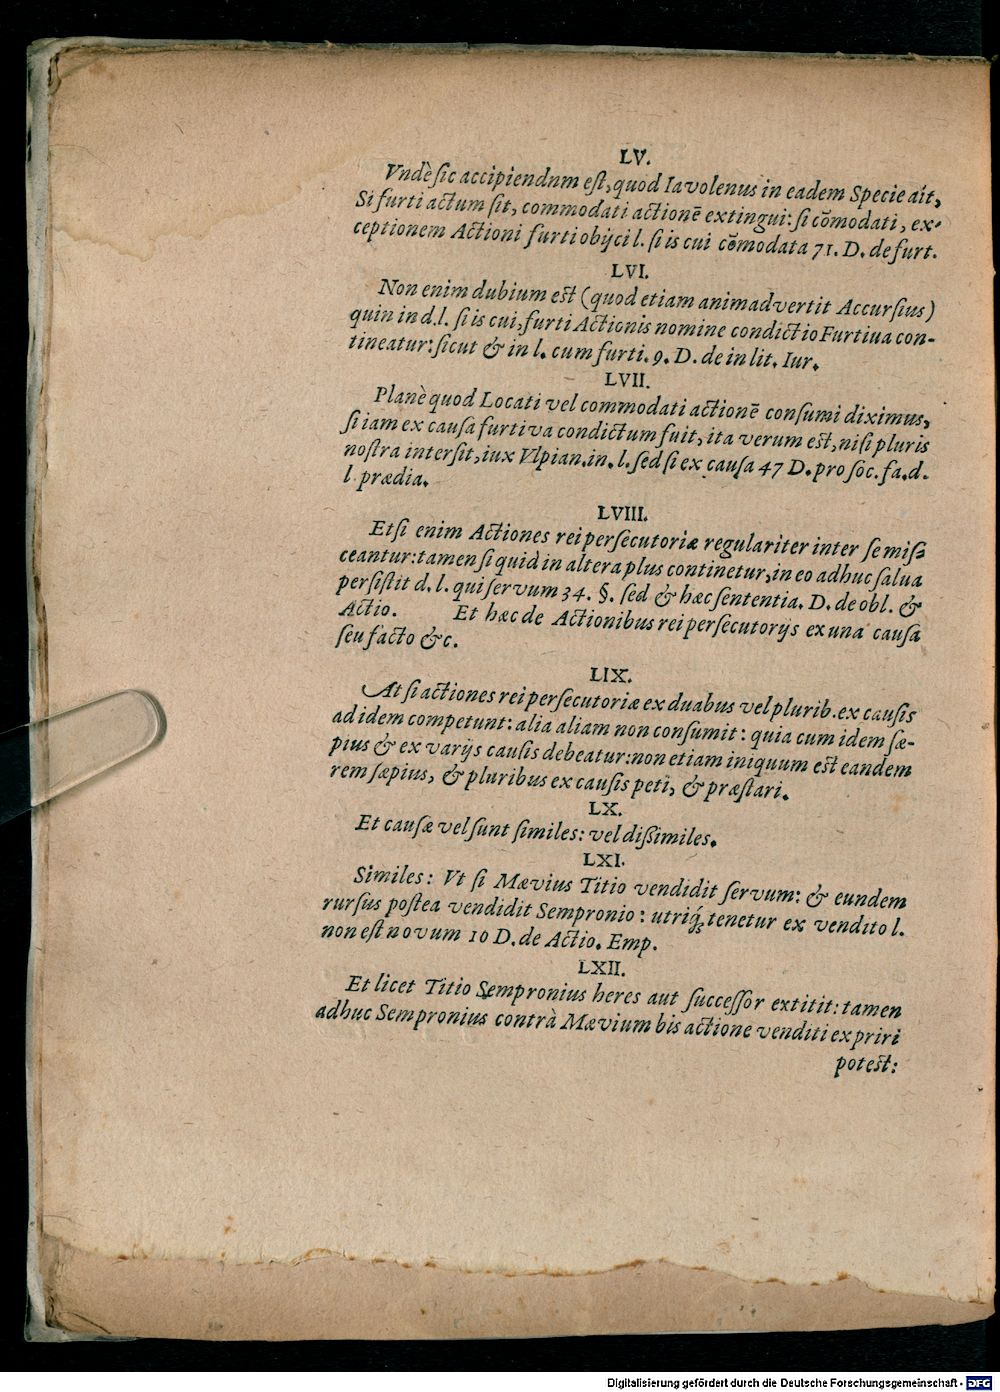 LV.
Vndè ſic accipiendnm eſt, quod Iavolenus in eadem Specie ait,
Si furti actum ſit, commodati actionē extingui: ſi cōmodati, ex-
ceptionem Actioni furti obijci l. ſi is cui cōmodata 71. D. de furt.
LVI.
Non enim dubium est (quod etiam animadvertit Accurſius)
quin in d.l. ſi is cui, furti Actionis nomine condictio Furtiua con-
tineatur: ſicut & in l. cum furti. 9. D. de in lit. Iur.
LVII.
Planè quod Locati vel commodati actionē conſumi diximus,
ſi iam ex cauſa furtiva condictum fuit, ita verum est, niſi pluris
noſtra interſit, iux Vlpian. in. l. ſed ſi ex cauſa 47 D. pro ſoc. fa. d.
l. prædia.
LVIII.
Etſi enim Actiones rei perſecutoriæ regulariter inter ſe miſ-
ceantur: tamen ſi quid in altera plus continetur, in eo adhuc ſalua
perſiſtit d. l. qui ſervum 34. §. ſed & hæc ſententia. D. de obl. &
Actio. Et hæc de Actionibus rei perſecutorijs ex una cauſa
ſeu facto &c.
LIX.
At ſi actiones rei perſecutoriæ ex duabus vel plurib. ex cauſis
ad idem competunt: alia aliam non conſumit: quia cum idem ſæ-
pius & ex varijs cauſis debeatur: non etiam iniquum est eandem
rem ſæpius, & pluribus ex cauſis peti, & præſtari.
LX.
Et cauſæ vel ſunt ſimiles: vel diſsimiles.
LXI.
Similes: Vt ſi Mævius Titio vendidit ſervum: & eundem
rurſus poſtea vendidit Sempronio: utriq́; tenetur ex vendito l.
non eſt novum 10 D. de Actio. Emp.
LXII.
Et licet Titio Sempronius heres aut ſucceſſor extitit: tamen
adhuc Sempronius contrà Mævium bis actione venditi expriri
potest:
Digitalisierung gefördert durch die Deutsche Forschungsgemeinschaft - DFG